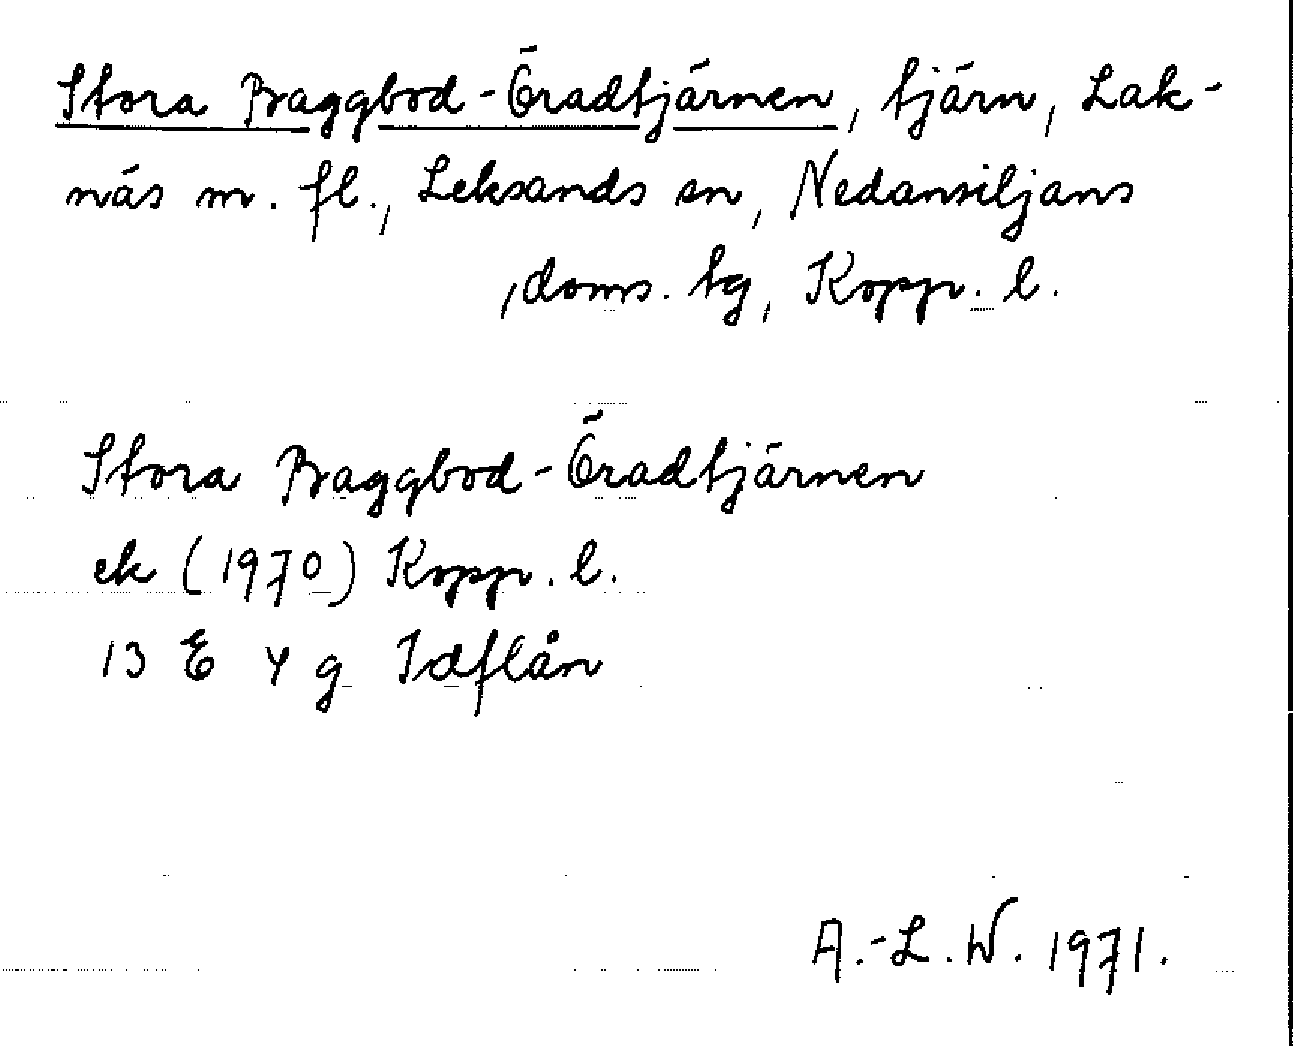 Stora Braggbod-Öradtjärnen, tjärn, Lak-
näs m. fl., Leksands sn, Nedansiljans
doms. tg, Kopp. l.
Stora Braggbod-Öradtjärnen
ek (1970) Kopp. l.
13 E 4 g Idflån
A.-L.W. 1971.